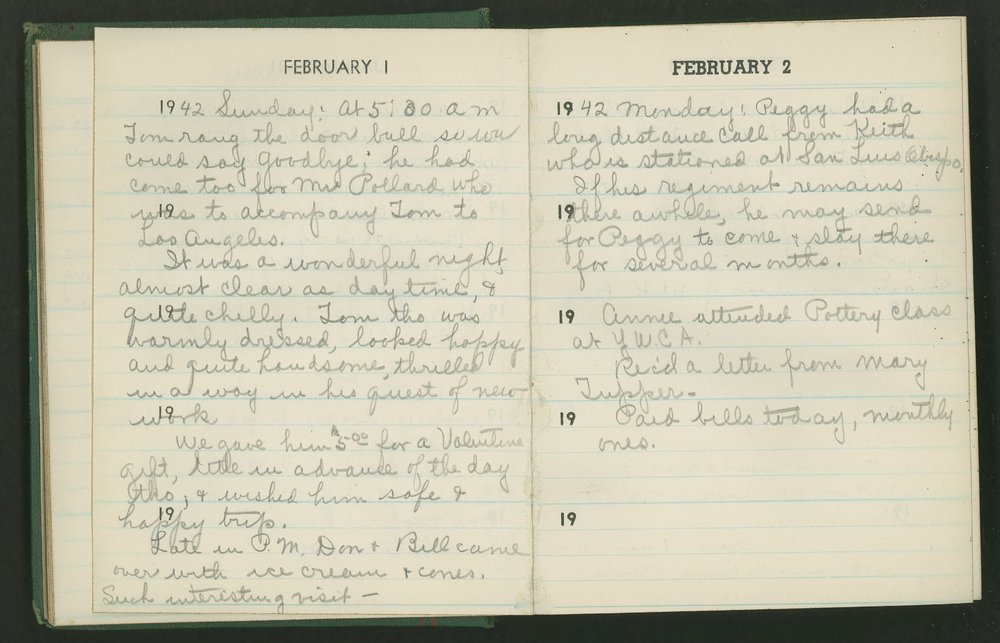 FEBRUARY 1
1942 Sunday: At 5:30 a m
Tom rang the door bell so we
could say goodbye; he had
come too for Mr Pollard who
was to accompany Tom to
19
Los Angeles.
It was a wonderful night
almost clear as day time, &
quite chilly. Tom tho was
19
warmly dressed, looked happy
and quite handsome, thrilled
in a way in his quest of new
work.
19
We gave him $5.00 for a Valentine
gift, little in advance of the day
tho, & wished him safe &
happy trip.
19
Late in P.M. Don & Bill came
over with ice cream & cones.
Such interesting visit —
FEBRUARY 2
1942 Monday: Peggy had a
long distance call from Keith
who is stationed at San Luis Obispo.
If his regiment remains
there awhile, he may send
19
for Peggy to come & stay there
for several months.
19 Annie attended Pottery class
at Y.W.C.A.
Rec'd a letter from Mary
Tupper.
19 Paid bills today, monthly
ones.
19